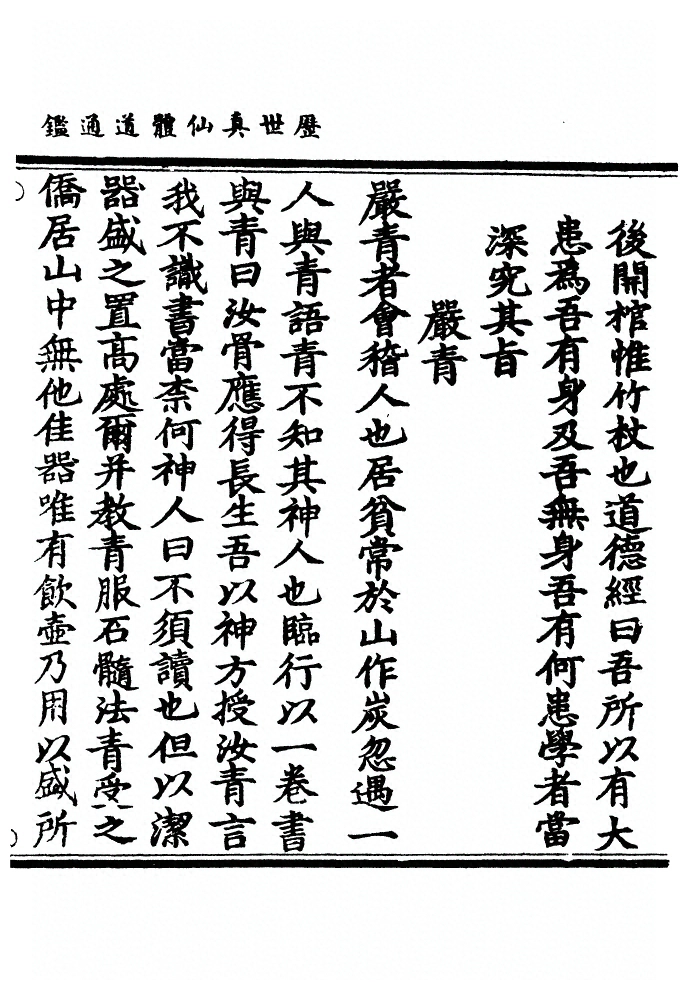 歷世真仙體道通鑑
後開棺惟竹杖也道德經曰吾所以有大
患為吾有身及吾無身吾有何患學者當
深究其旨
嚴青
嚴青者會稽人也居貧常於山作炭忽遇一
人與青語青不知其神人也臨行以一卷書
與青曰汝骨應得長生吾以神方授汝青言
我不識書當柰何神人曰不須讀也但以潔
器盛之置高處爾并教青服石髓法青受之
僑居山中無他佳器唯有飲壺乃用以盛所